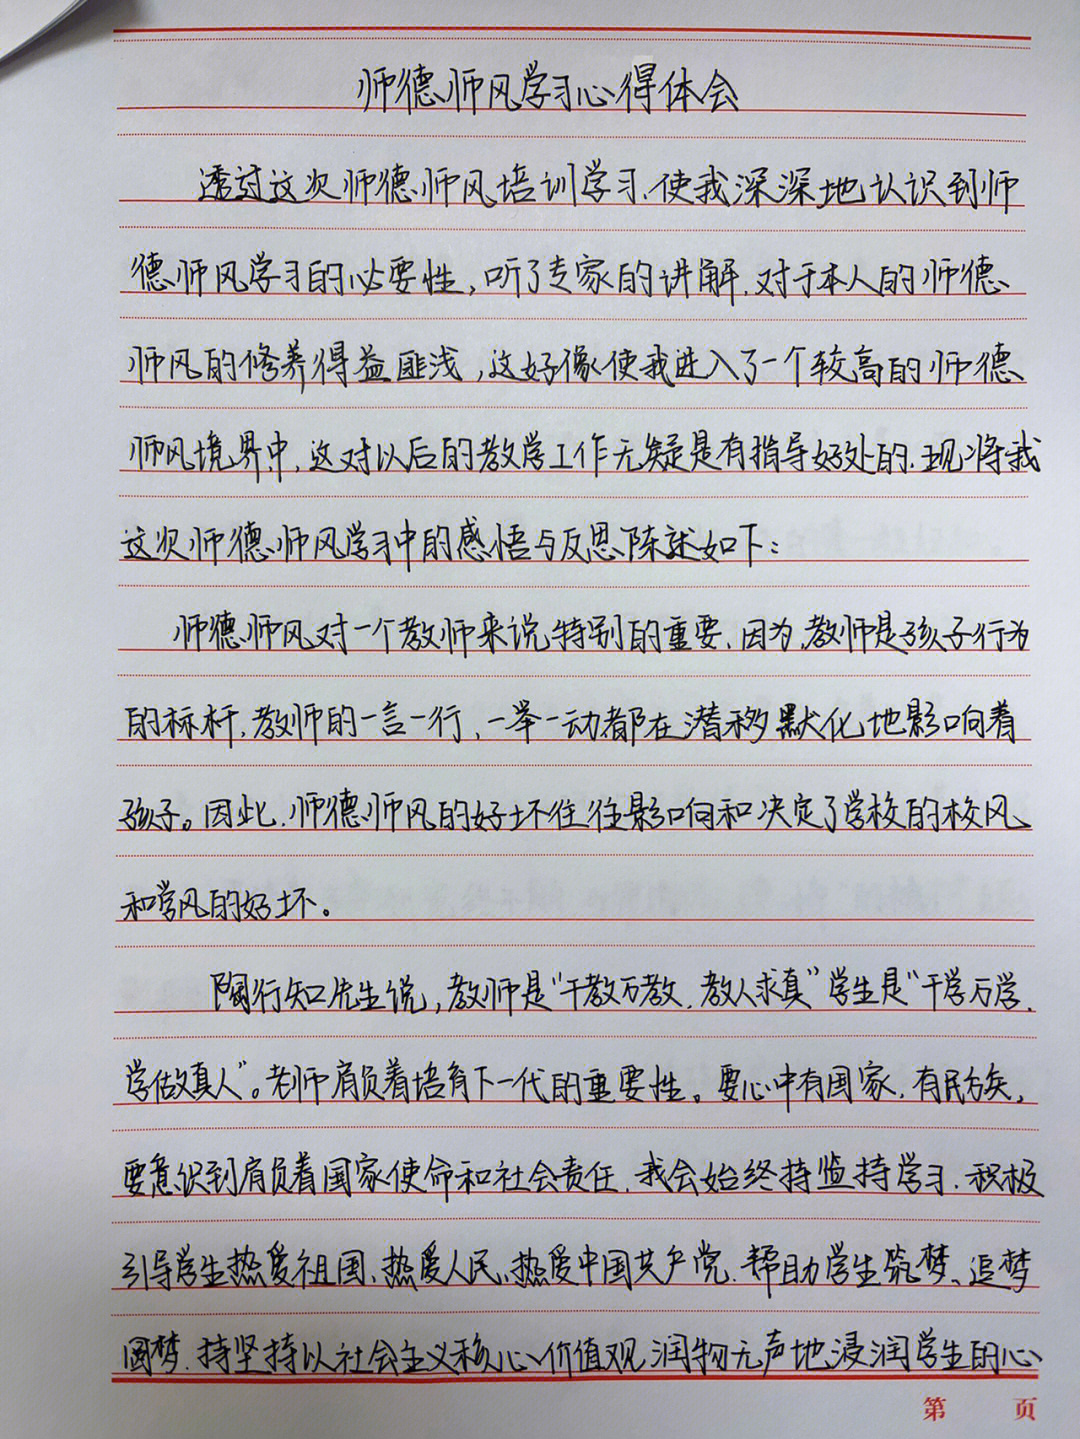 师德师风学习心得体会
透过这次师德师风培训学习,使我深深地认识到师
德师风学习的必要性,听了专家的讲解,对于本人的师德
师风的修养得益匪浅,这好像使我进入了一个较高的师德
师风境界中,这对以后的教学工作无疑是有指导好处的,现将我
这次师德师风学习中的感悟与反思陈述如下:
师德师风对一个教师来说特别的重要,因为,教师是孩子行为
的标杆,教师的一言一行、一举一动都在潜移默化地影响着
孩子。因此,师德师风的好坏往往影响和决定了学校的校风
和学风的好坏。
陶行知先生说,教师是“千教万教,教人求真”学生是“千学万学,
学做真人”。老师肩负着培育下一代的重要性。要心中有国家,有民族,
要意识到肩负着国家使命和社会责任,我会始终持监持学习,积极
引导学生热爱祖国、热爱人民、热爱中国共产党,帮助学生筑梦、追梦
圆梦,持坚持以社会主义核心价值观润物无声地浸润学生的心
第 页